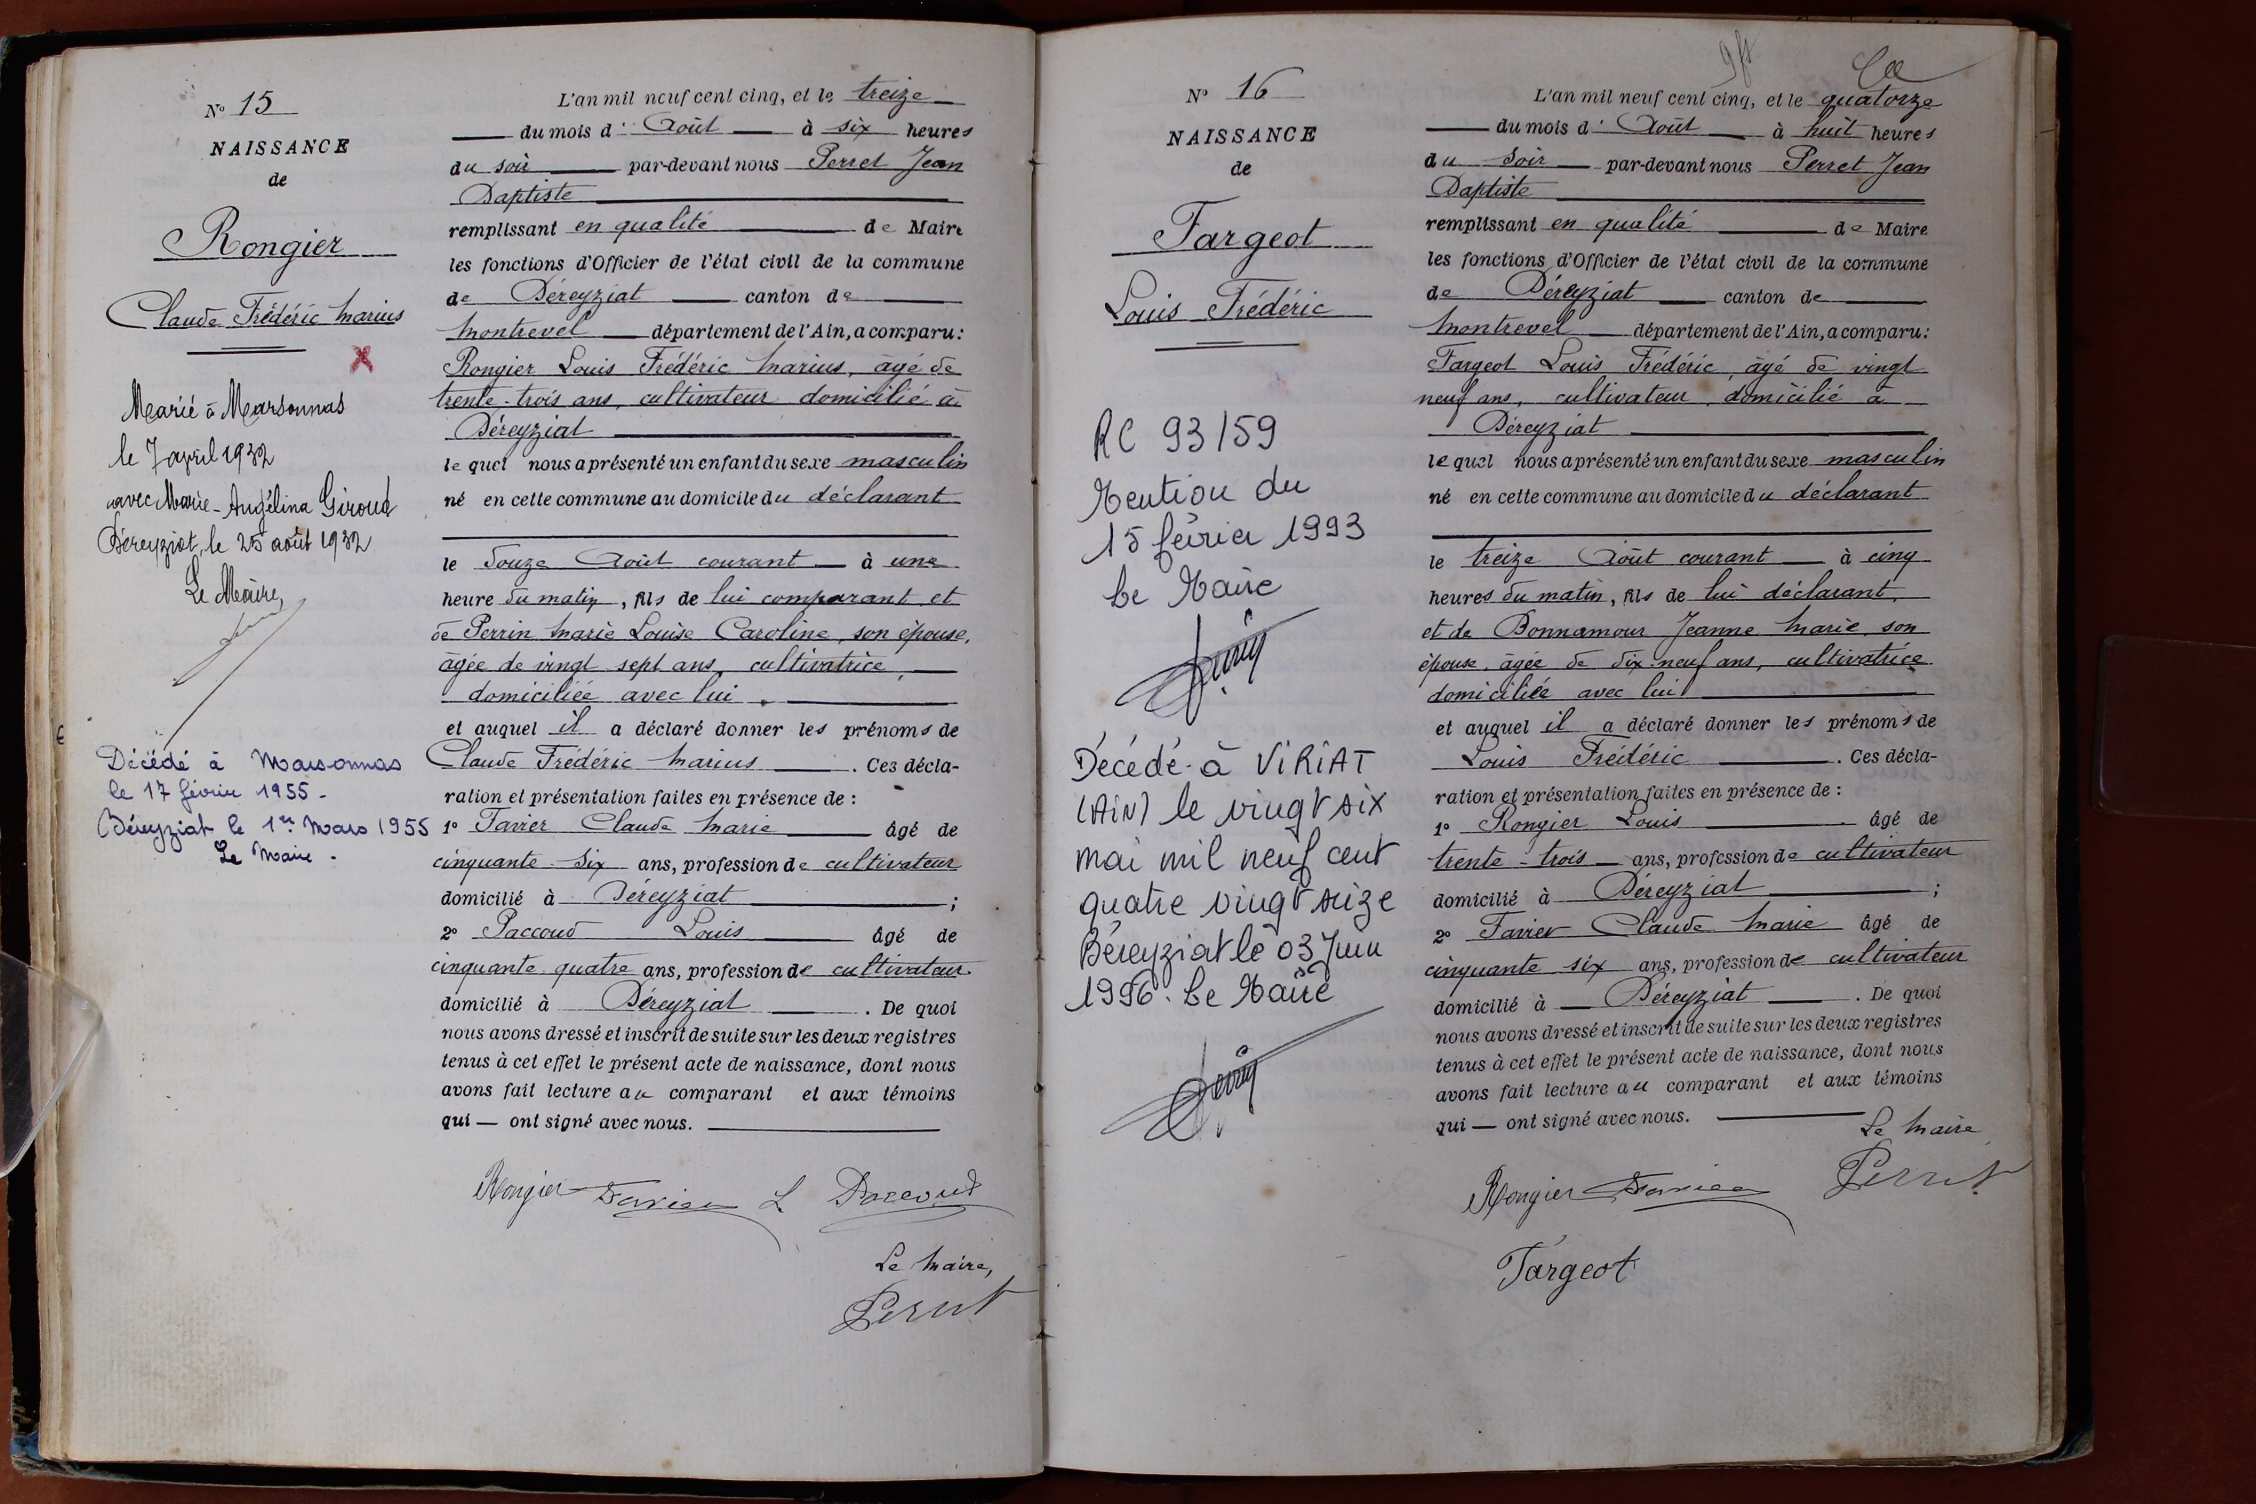 N° 15
NAISSANCE
de
Rongier
Claude Frédéric Marius
Marié à Marsonnas
le 7 avril 1932
avec Marie-Angélina Giroud
Béreyziat, le 25 août 1932
Le Maire,
Décédé à Marsonnas
le 17 février 1955 -
Béreyziat le 1er Mars 1955
Le Maire -
L'an mil neuf cent cinq, et le treize
du mois d'Août à six heures
du soir par-devant nous Perret Jean
Baptiste
remplissant en qualité de Maire
les fonctions d'Officier de l'état civil de la commune
de Béreyziat canton de
Montrevel département de l'Ain, a comparu:
Rongier Louis Frédéric Marius, âgé de
trente-trois ans, cultivateur domicilié à
Béreyziat
lequel nous a présenté un enfant du sexe masculin
né en cette commune au domicile du déclarant
le douze Août courant à une
heure du matin, fils de lui comparant et
de Perrin Marie Louise Caroline, son épouse,
âgée de vingt sept ans, cultivatrice,
domiciliée avec lui.
et auquel il a déclaré donner les prénoms de
Claude Frédéric Marius. Ces décla-
ration et présentation faites en présence de :
1° Favier Claude Marie âgé de
cinquante-six ans, profession de cultivateur
domicilié à Béreyziat ;
2° Paccoud Louis âgé de
cinquante quatre ans, profession de cultivateur
domicilié à Béreyziat. De quoi
nous avons dressé et inscrit de suite sur les deux registres
tenus à cet effet le présent acte de naissance, dont nous
avons fait lecture au comparant et aux témoins
qui — ont signé avec nous.
Rongier Favier L Paccoud
Le Maire,
Perret
N° 16
NAISSANCE
de
Fargeot
Louis Frédéric
RC 93/59
Mention du
15 février 1993
Le Maire
Décédé à VIRIAT
(AIN) le vingt six
mai mil neuf cent
quatre vingt seize
Béreyziat le 03 Juin
1996. Le Maire
L'an mil neuf cent cinq, et le quatorze
du mois d'Août à huit heures
du soir par-devant nous Perret Jean
Baptiste
remplissant en qualité de Maire
les fonctions d'Officier de l'état civil de la commune
de Béreyziat canton de
Montrevel département de l'Ain, a comparu:
Fargeot Louis Frédéric, âgé de vingt
neuf ans, cultivateur, domicilié à
Béreyziat
lequel nous a présenté un enfant du sexe masculin
né en cette commune au domicile du déclarant
le treize Août courant à cinq
heures du matin, fils de lui déclarant,
et de Bonnamour Jeanne Marie, son
épouse, âgée de dix-neuf ans, cultivatrice
domiciliée avec lui
et auquel il a déclaré donner les prénoms de
Louis Frédéric. Ces décla-
ration et présentation faites en présence de :
1° Rongier Louis âgé de
trente-trois ans, profession de cultivateur
domicilié à Béreyziat ;
2° Favier Claude Marie âgé de
cinquante six ans, profession de cultivateur
domicilié à Béreyziat. De quoi
nous avons dressé et inscrit de suite sur les deux registres
tenus à cet effet le présent acte de naissance, dont nous
avons fait lecture au comparant et aux témoins
qui — ont signé avec nous.
Le Maire
Rongier Favier Perret
Fargeot